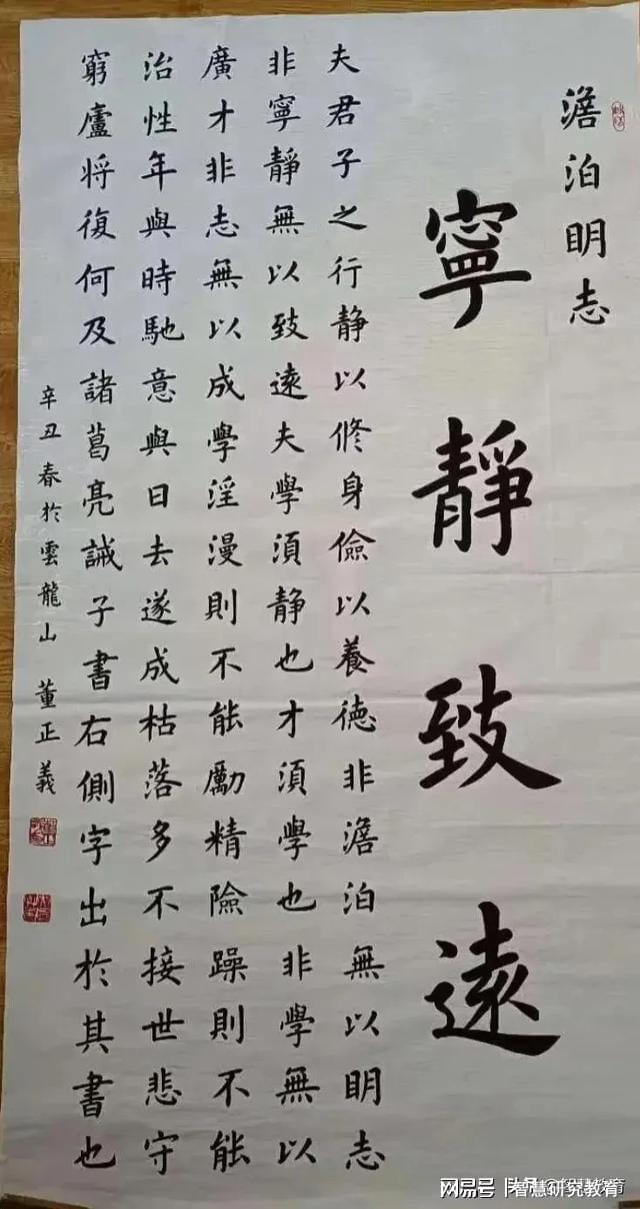 澹泊明志
寧靜致遠
夫君子之行靜以修身儉以養德非澹泊無以明志
非寧靜無以致遠夫學須靜也才須學也非學無以
廣才非志無以成學淫漫則不能勵精險躁則不能
治性年與時馳意與日去遂成枯落多不接世悲守
窮廬將復何及諸葛亮誡子書右側字出於其書也
辛丑春於雲龍山 董正義
网易号 | 智慧研究教育